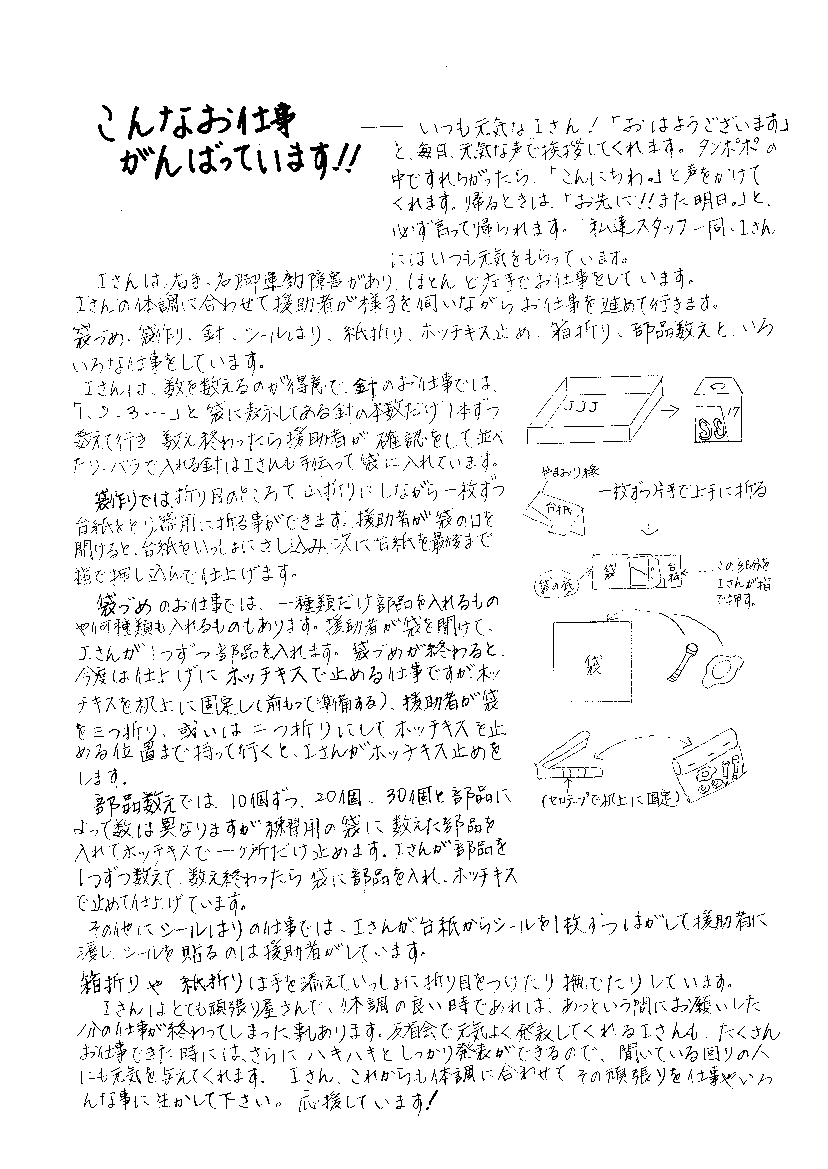 こんなお仕事
がんばっています!!
―― いつも元気なIさん!「おはようございます」
と、毎日、元気な声で挨拶してくれます。タンポポの
中ですれちがったら、「こんにちわ。」と声をかけて
くれます。帰るときは、「お先に!!また明日。」と、
必ず言って帰られます。私達スタッフ一同、Iさん
にはいつも元気をもらっています。
Iさんは、右手、右脚運動障害があり、ほとんど左手でお仕事をしています。
Iさんの体調に合わせて援助者が様子を伺いながらお仕事を進めて行きます。
袋づめ、袋作り、針、シールはり、紙折り、ホッチキス止め、箱折り、部品数えと、いろ
いろな仕事をしています。
Iさんは、数を数えるのが得意で、針のお仕事では、
「1、2、3…」と袋に表示してある針の本数だけ1本ずつ
数えて行き 数え終わったら援助者が 確認をして並べ
たり、バラで入れる針はIさんも手伝って袋に入れています。
袋作りでは、折り目のところで山折りにしながら一枚ずつ
台紙をとり器用に折る事ができます。援助者が袋の口を
開けると、台紙をいっしょにさし込み、次に台紙を最後まで
指で押し込んで仕上げます。
袋づめのお仕事では、一種類だけ部品を入れるもの
や何種類も入れるものもあります。援助者が袋を開けて、
Iさんが1つずつ部品を入れます。袋づめが終わると、
今度は仕上げにホッチキスで止める仕事ですがホッ
チキスを机上に固定し(前もって準備する)、援助者が袋
を三つ折り、或いは二つ折りにしてホッチキスを止
める位置まで持って行くと、Iさんがホッチキス止めを
します。
部品数えでは、10個ずつ、20個、30個と部品に
よって数は異なりますが練習用の袋に数えた部品を
入れてホッチキスで一ヶ所だけ止めます。Iさんが部品を
1つずつ数えて、数え終わったら袋に部品を入れ、ホッチキス
で止めて仕上げています。
JJJ
17
やまおり線
台紙
一枚ずつ片手で上手に折る
袋の口
袋
台紙
…この部分を
Iさんが指
で押す。
袋
(セロテープで机上に固定)
その他にシールはりの仕事では、Iさんが台紙からシールを1枚ずつはがして援助者に
渡し、シールを貼るのは援助者がしています。
箱折りや 紙折りは手を添えていっしょに折り目をつけたり撫でたりしています。
Iさんはとても頑張り屋さんで、体調の良い時であれば、あっという間にお願いした
分の仕事が終わってしまった事もあります。反省会で元気よく発表してくれるIさんも、たくさん
お仕事できた時には、さらにハキハキとしっかり発表ができるので、聞いている回りの人
にも元気を与えてくれます。 Iさん、これからも体調に合わせてその頑張りを仕事やいろ
んな事に生かして下さい。応援しています!